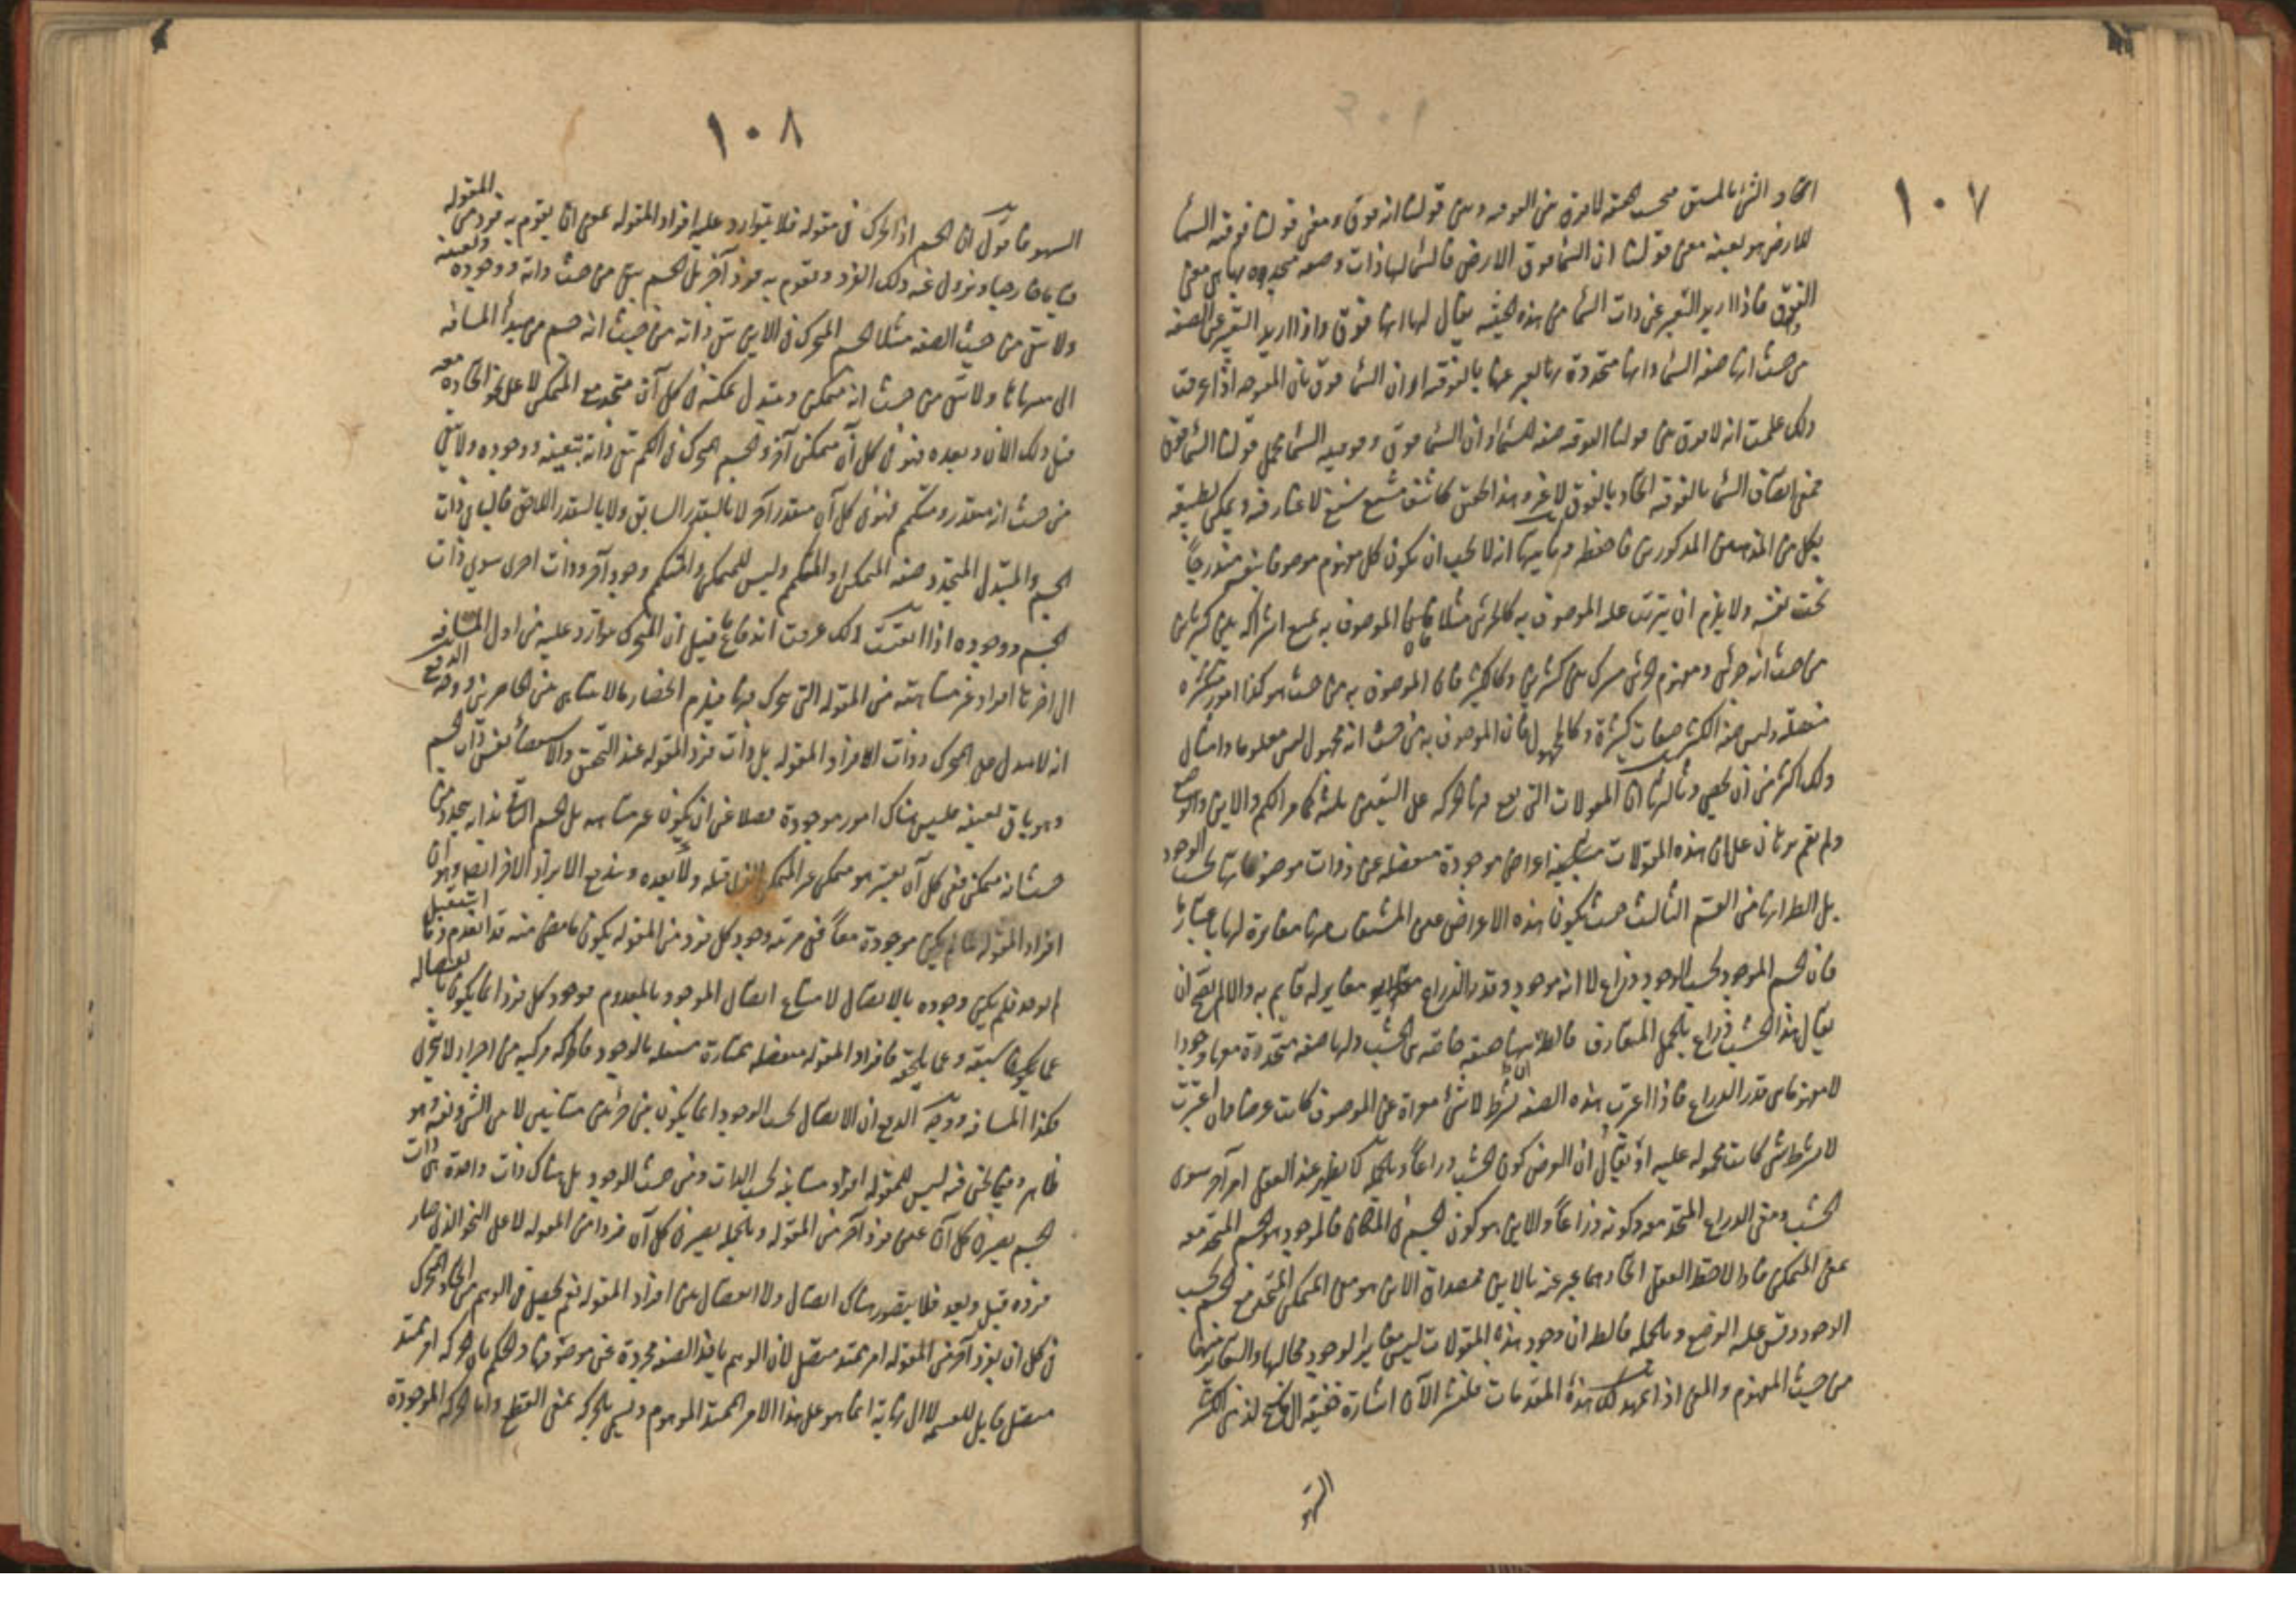 ١٠٧
اتحاد الشئ بالمشتق بحسبه لا فرق بين الفوقية وبين قولنا انه فوق ومعنى قولنا فوقية السماء
للارض هو بعينه معنى قولنا ان السماء فوق الارض فالسماء لها ذات وصفة متحدة بها هي معنى
الفوق فاذا اريد التعبير عن ذات السماء من هذه الحيثية يقال لها انها فوق واذا اريد التعبير عن الصفة
من حيث انها صفة السماء وانها متحدة بها يعبر عنها بالفوقية او ان السماء فوق بان المفتوحة اذا عرفت
ذلك علمت انه لا فرق بين قولنا الفوقية صفة السماء او ان السماء فوق وفوقية السماء وبين قولنا السماء فوق
فمعنى اتصاف السماء بالفوقية اتحاده بالفوق لا غير وهذا تحقيق كاشف لا غبار فيه ويمكن تطبيقه
بكل من المذهبين المذكورين فاحفظه وثانيها انه لا يجب ان يكون كل مفهوم موصوفا بنفسه مندرجا
تحت نفسه ولا يلزم ان يترتب على الموصوف به كالجزئي مثلا فان الموصوف به يمتنع اشتراكه بين كثيرين
من حيث انه جزئي ومفهوم الجزئي مشترك بين كثيرين وكالكثير فان الموصوف به من حيث هو كذا امور متكثرة
منفصلة وليس صفة الكثير صفات كثيرة وكالمجهول فان الموصوف به من حيث انه مجهول ليس معلوما وامثال
ذلك اكثر من ان يحصى وثالثها ان المقولات التي يقع فيها الحركة على التقدير ثلثة كما مر الكم والاين والوضع
ولم يقم برهان على ان هذه المقولات اعراض موجودة منفصلة عن ذوات موصوفاتها بحسب الوجود
بل الظاهر انها من القسم الثالث حيث يكون هذه الاعراض عين المشتقات منها مغايرة لها باعتبارها
فان الجسم الموجود بحسب الوجود ذراع لا انه موجود وقدر الذراع مغاير له قايم به والا لم يصح ان
يقال هذا الخشب ذراع بالحمل المتعارف فالظاهر انها صفة خاصة من الخشب ولها صفة متحدة معها وجودا
لا مفهوما هي قدر الذراع فاذا اعتبرت هذه الصفة بشرط لا شئ معراة عن الموصوف كانت عرضا وان اعتبرت
لا بشرط شئ كانت محمولة عليه او يقال ان العرض كون الخشب ذراعا وبالجملة لا يظهر عند العقل امر آخر سوى
الخشب ومعنى الذراع المتحد معه وكونه ذراعا والاين هو كون الجسم في المكان فالموجود هو الجسم المتحد معه
معنى المتمكن فاذا لاحظ العقل اتحادهما عبر عنه بالاين فمصداق الاين هو معنى المتمكن المتحد مع الجسم بحسب
الوجود وقس عليه الوضع وبالجملة فالظاهر ان وجود هذه المقولات ليس مغايرا لوجود محالها والتغاير بينهما
من حيث المفهوم والمعنى اذا تمهد لك هذه المقدمات فلنشر الآن اشارة خفيفة الى
السهو
١٠٨
السهو فاقول ان الجسم اذا تحرك في مقولة فلا يتوارد عليه افراد المقولة بمعنى ان يقوم به فرد من المقولة
قياما خارجيا ويزول عنه ذلك الفرد ويقوم به فرد آخر بل الجسم يبقى من حيث ذاته ووجوده وتعينه
ولا يبقى من حيث الصفة مثلا الجسم المتحرك في الاين يبقى ذاته من حيث انه جسم من مبدأ المسافة
الى منتهاها ولا يبقى من حيث انه متمكن ويتبدل تمكنه في كل آن متحد مع المتمكن لا على نحو اتحاده معه
قبل ذلك الان وبعده فهو في كل آن متمكن آخر والجسم المتحرك في الكم يبقى ذاته بتعينه ووجوده ولا يبقى
من حيث انه متقدر ومتكمم فهو في كل آن متقدر آخر لا بالتقدر السابق ولا بالتقدر اللاحق فالباقي ذات
الجسم والمتبدل المتجدد صفة المتمكن او المتكمم وليس للمتمكن والمتكمم وجود آخر وذات اخرى سوى ذات
الجسم ووجوده اذا اتقنت ذلك عرفت اندفاع ما قيل ان المتحرك يتوارد عليه من اول المسافة
الى آخرها افراد غير متناهية من المقولة التي تحرك فيها فيلزم انحصار ما لا يتناهى بين الحاصرين ووجه الدفع
انه لا يتبدل على المتحرك ذوات الافراد المقولة بل ذات فرد المقولة عند التحقق والاستقصاء نفس ذات الجسم
وهو باق بعينه فليس هناك امور موجودة فضلا عن ان يكون غير متناهية بل الجسم الثابت ذاته يتجدد من
حيث انه متمكن ففي كل آن يعتبر هو متمكن غير المتمكن الذي قبله ولا بعده ويندفع الايراد الآخر ايضا وهو ان
افراد المقولة لما لم يكن موجودة معا ففي مرتبة وجود كل فرد من المقولة يكون ما مضى منه قد انعدم وما استقبل
لم يوجد فلم يكن وجوده بالاتصال لامتناع اتصال الموجود بالمعدوم فوجود كل فرد انما يكون بانفصاله
عما يكون سبقه وعما يلحقه فافراد المقولة منفصلة ممتازة مستقلة بالوجود فالحركة مركبة من اجزاء لا تتجزى
فكذا المسافة ووجه الدفع ان الاتصال بحسب الوجود انما يكون بين جزئين متباينين لا بين الشئ ونفسه وهو
ظاهر وفيما نحن فيه ليس للمقولة افراد متباينة بحسب الذات ومن حيث الوجود بل هناك ذات واحدة هي ذات
الجسم يصير في كل آن عين فرد آخر من المقولة وبالجملة يصير في كل آن فردا من المقولة لا على النحو الذي صار
فرده قبل وبعد فلا يتصور هناك اتصال ولا انفصال بين افراد المقولة نعم يحصل في الوهم من اتحاد المتحرك
في كل ان بفرد آخر من المقولة امر ممتد متصل لان الوهم ياخذ الصفة مجردة عن موصوفها والحكم بان الحركة امر ممتد
متصل قابل للقسمة لا الى نهاية انما هو على هذا الامر الممتد الموهوم وليس بالحركة بمعنى القطع واما الحركة الموجودة